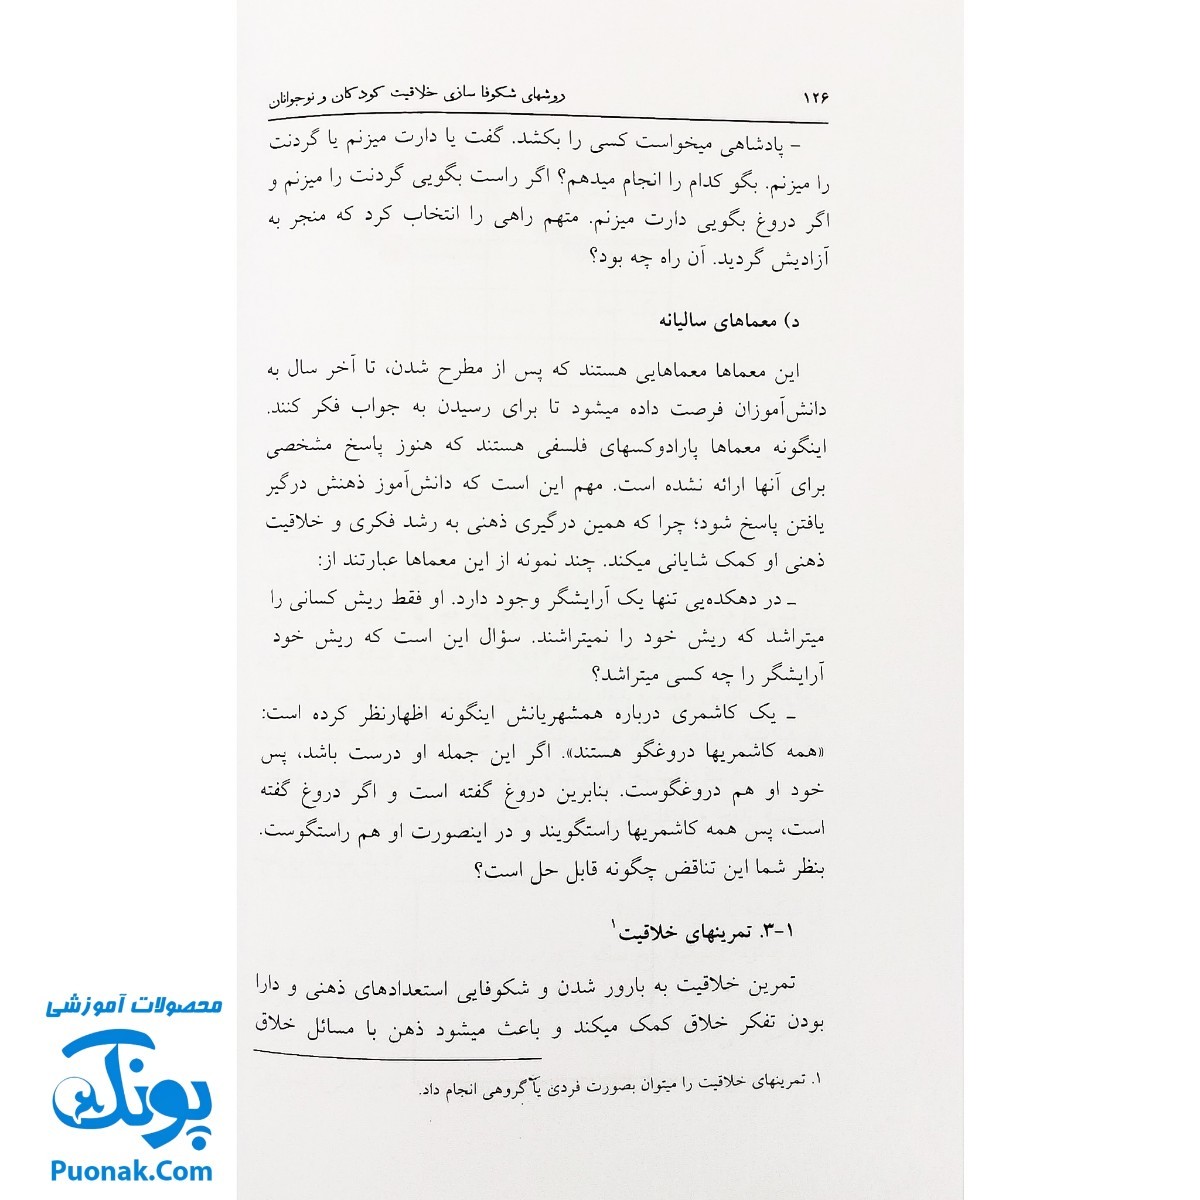 ۱۲۶ روشهای شکوفا سازی خلاقیت کودکان و نوجوانان
- پادشاهی میخواست کسی را بکشد. گفت یا دارت میزنم یا گردنت
را میزنم. بگو کدام را انجام میدهم؟ اگر راست بگویی گردنت را میزنم و
اگر دروغ بگویی دارت میزنم. متهم راهی را انتخاب کرد که منجر به
آزادیش گردید. آن راه چه بود؟
د) معماهای سالیانه
این معماها معماهایی هستند که پس از مطرح شدن، تا آخر سال به
دانش‌آموزان فرصت داده میشود تا برای رسیدن به جواب فکر کنند.
اینگونه معماها پارادوکسهای فلسفی هستند که هنوز پاسخ مشخصی
برای آنها ارائه نشده است. مهم این است که دانش‌آموز ذهنش درگیر
یافتن پاسخ شود؛ چرا که همین درگیری ذهنی به رشد فکری و خلاقیت
ذهنی او کمک شایانی میکند. چند نمونه از این معماها عبارتند از:
ـ در دهکده‌یی تنها یک آرایشگر وجود دارد. او فقط ریش کسانی را
میتراشد که ریش خود را نمیتراشند. سؤال این است که ریش خود
آرایشگر را چه کسی میتراشد؟
ـ یک کاشمری درباره همشهریانش اینگونه اظهارنظر کرده است:
«همه کاشمریها دروغگو هستند». اگر این جمله او درست باشد، پس
خود او هم دروغگوست. بنابرین دروغ گفته است و اگر دروغ گفته
است، پس همه کاشمریها راستگویند و در اینصورت او هم راستگوست.
بنظر شما این تناقض چگونه قابل حل است؟
۳-۱. تمرینهای خلاقیت۱
تمرین خلاقیت به بارور شدن و شکوفایی استعدادهای ذهنی و دارا
بودن تفکر خلاق کمک میکند و باعث میشود ذهن با مسائل خلاق
۱. تمرینهای خلاقیت را میتوان بصورت فردی یا گروهی انجام داد.
محصولات آموزشی
پونک
Puonak.Com